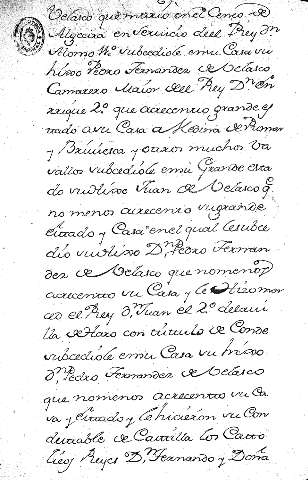 Velasco que murio en el Cerco de
Algecira en servicio del Rey Dn
Alonso subcediole en su Casa su
hixo Pedro Fernandez de Velasco
Camarero Maior del Rey Dn En
rrique 2º que acrecento grande es
tado a su Casa a Medina de Pomar
y Briviesca y otros muchos va
sallos subcediole en su Grande esta
do su Hixo Juan de Velasco q
no menos acrecento su grande
estado y Casa en el qual le subce
dio su Hixo Dn Pedro Fernan
dez de Velasco que no menos
acrecento su Casa y le Hizo mor
ced el Rey Dn Juan el 2º de la vi
lla de Haro con titulo de Conde
subcediole en su Casa su hixo
Dn Pedro Fernandez de Velasco
que no menos acrecento su Ca
sa y estado y le hicieron su Con
destable de Castilla los Catto
licos Reyes Dn Fernando y Doña